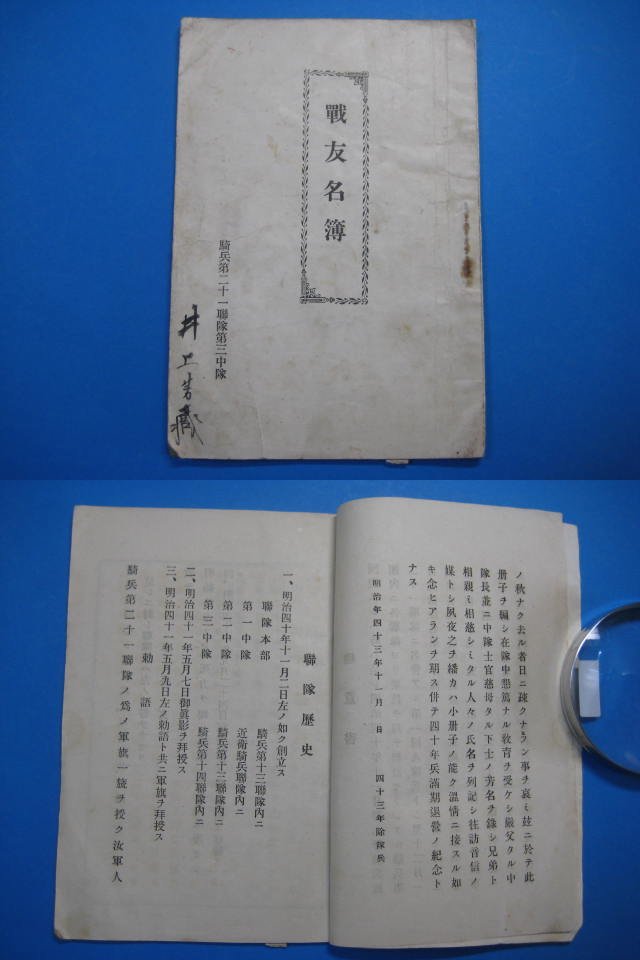 戰友名簿
騎兵第二十一聯隊第三中隊
井上
藏
ノ秋ナク去ル者日ニ疎クナラン事ヲ哀ミ玆ニ於テ此
册子ヲ編シ在隊中懇篤ナル敎育ヲ受ケシ嚴父タル中
隊長並ニ中隊士官慈母タル下士ノ芳名ヲ錄シ兄弟ト
相親ミ相慈シミタル人々ノ氏名ヲ列記シ往訪音信ノ
媒トシ夙夜之ヲ繙カハ小册子ノ能ク溫情ニ接スル如
キ念ヒアランチ玥ス併テ四十年兵滿期退營ノ紀念ト
ナス
明治年四十三年十一月 日 四十三年除隊兵
聯隊歷史
一、明治四十年十一月二日左ノ如ク創立ス
聯隊本部 騎兵第十三聯隊內ニ
第一中隊 近衞騎兵聯隊內ニ
第二中隊 騎兵第十三聯隊內ニ
第三中隊 騎兵第十四聯隊內ニ
二、明治四十一年五月七日御眞影ヲ拜授ス
三、明治四十一年五月九日左ノ勅語ト共ニ軍旗ヲ拜授ス
勅語
騎兵第二十一聯隊ノ爲ノ軍旗一旒ヲ授ク汝軍人